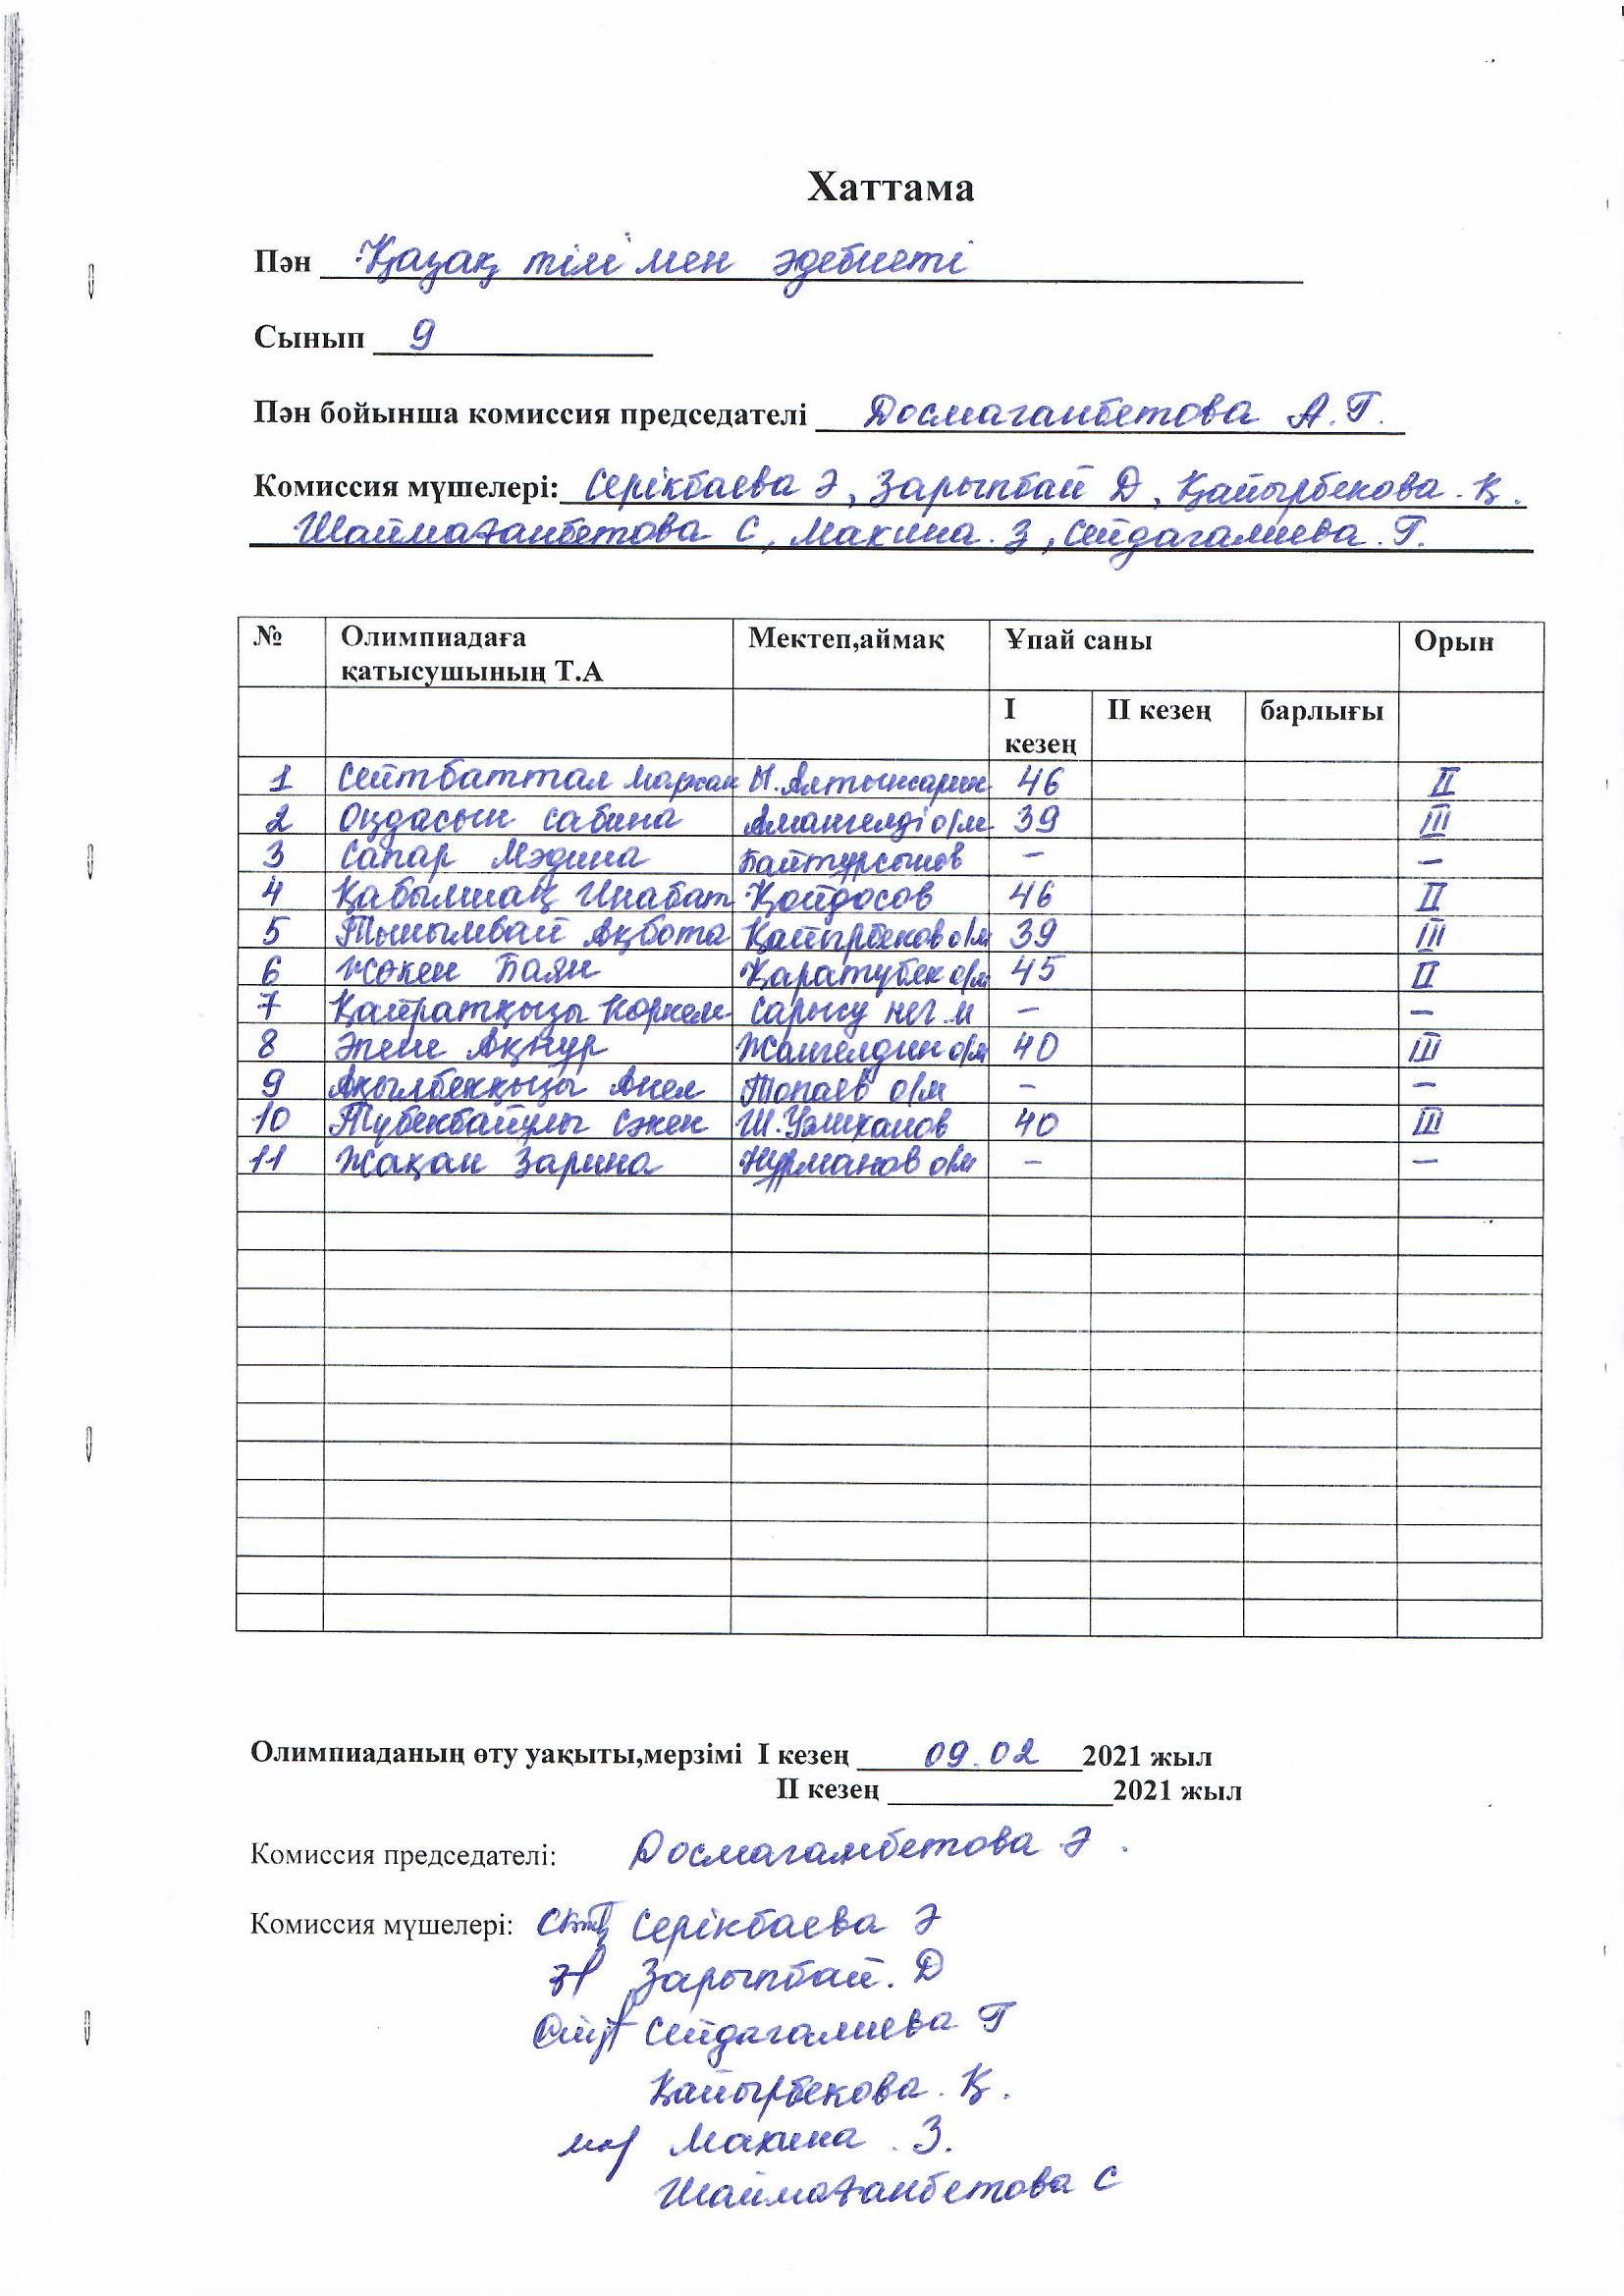 Хаттама
Пән Қазақ тілі мен әдебиеті
Сынып 9
Пән бойынша комиссия председателі Досмаганбетова А.Г.
Комиссия мүшелері: Серікбаева Ә, Зарыпбай Д, Қайырбекова. Қ.
Шаймағанбетова С, Макина. З, Сейдагалиева. Г.
№ Олимпиадаға қатысушының Т.А Мектеп,аймақ Ұпай саны Орын
I кезең II кезең барлығы
1 Сейтбаттал Маржан Ы. Алтынсарин 46 II
2 Оңдасын Сабина Амангелді о/м 39 III
3 Сапар Мәдина Байтұрсынов – –
4 Қабылшақ Инабат Қойдосов 46 II
5 Тынымбай Ақбота Қайырбеков о/м 39 III
6 Жөкен Баян Қаратүбек о/м 45 II
7 Қайратқызы Көркем Сарысу нег м – –
8 Әпен Ақнұр Жангелдин о/м 40 III
9 Ақылбекқызы Анел Топаев о/м – –
10 Түбекбайұлы Сәкен Ш. Уәлиханов 40 III
11 Жақан Зарина Нұрманов о/м – –
Олимпиаданың өту уақыты,мерзімі I кезең 09.02 2021 жыл
II кезең 2021 жыл
Комиссия председателі: Досмагамбетова Ә.
Комиссия мүшелері: Серікбаева Ә
Зарыпбай. Д
Сейдагалиева Г
Қайырбекова. Қ.
Макина. З.
Шаймағанбетова С